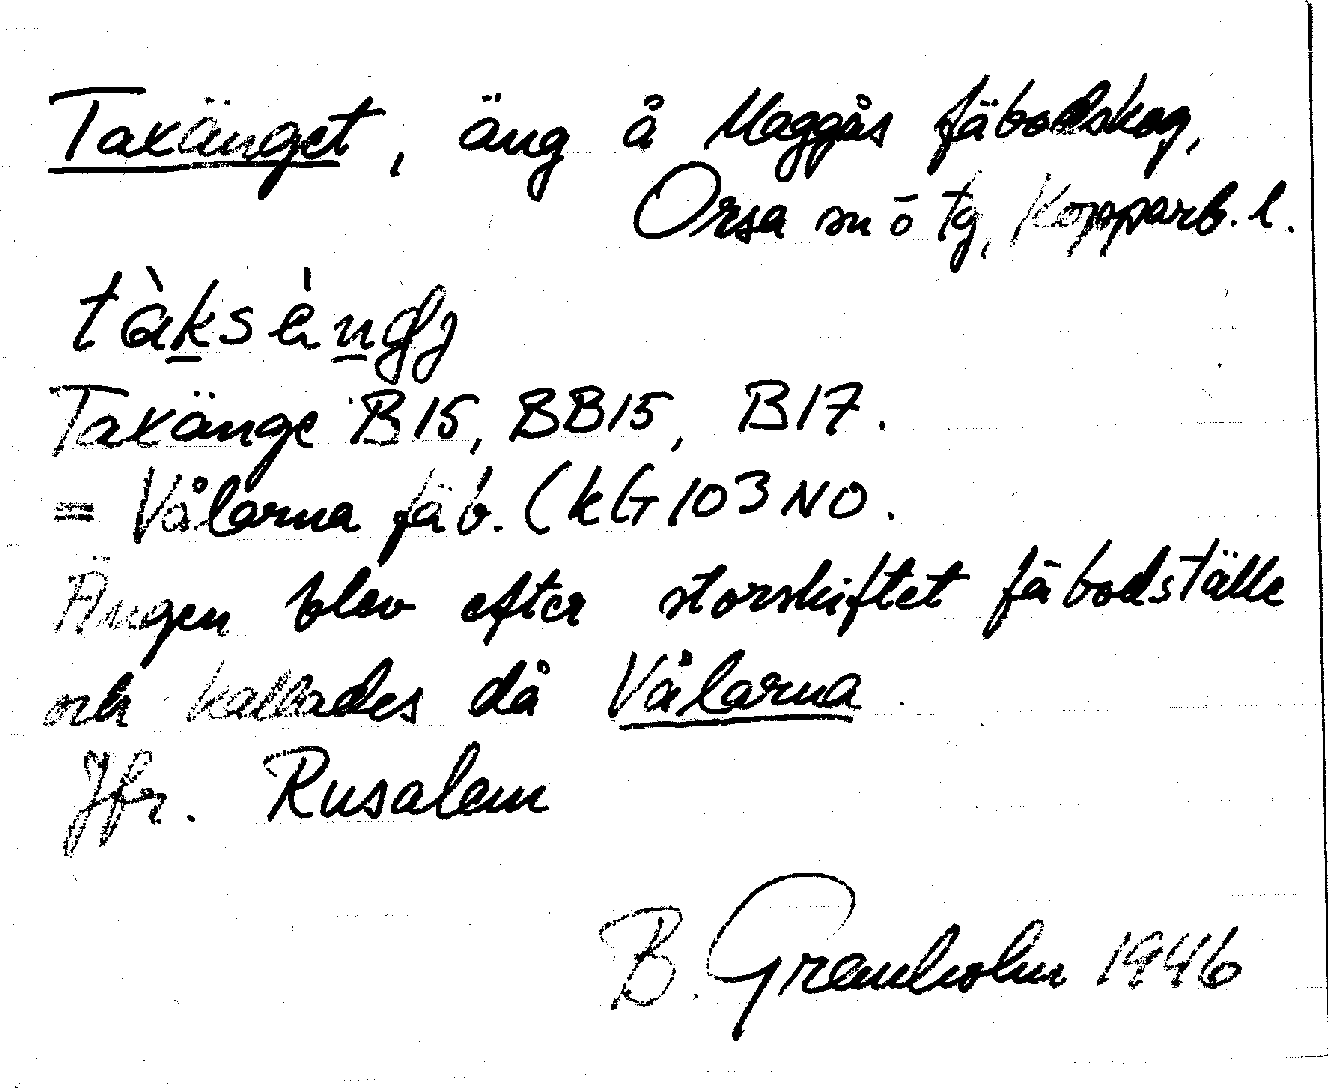 Taxänget, äng å Maggås fäbodskog,
Orsa sn o tg, Kopparb. l.
Taxänge B15, BB15, B17.
= Vålarna fäb. (kG103NO.
Ängen blev efter storskiftet fäbodställe
och kallades då Vålarna
Jfr. Rusalem
B. Granholm 1946